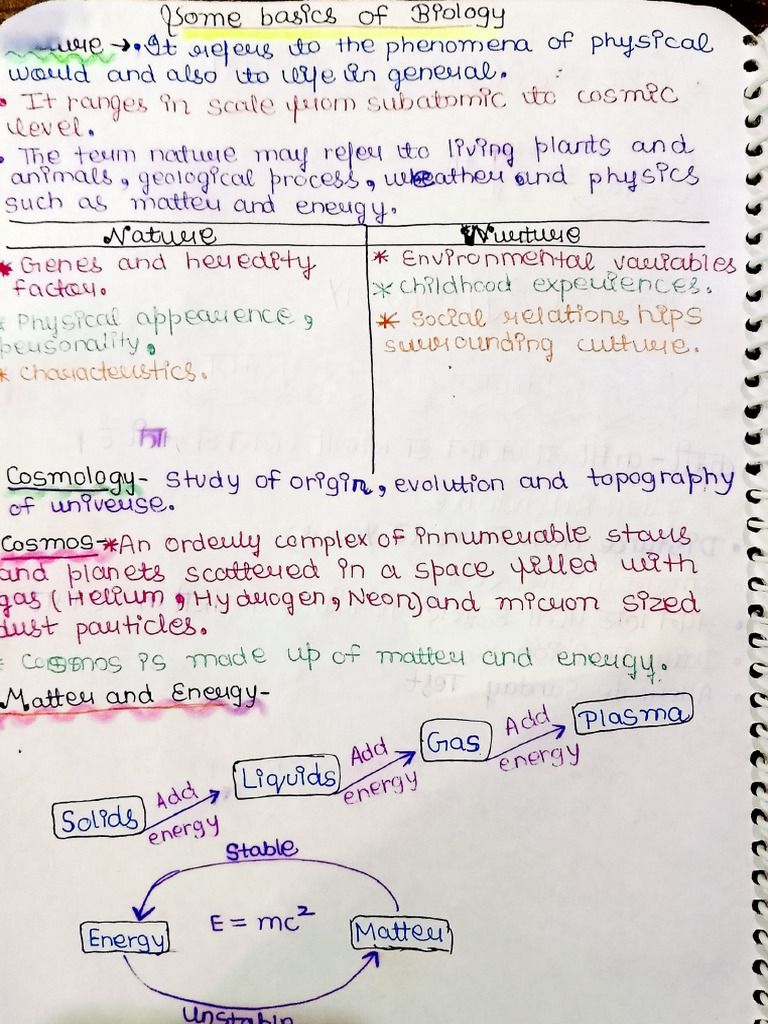 Some basics of Biology
Nature → • It refers to the phenomena of physical
world and also to life in general.
• It ranges in scale from subatomic to cosmic
level.
• The term nature may refer to living plants and
animals, geological process, weather and physics
such as matter and energy.
Nature
* Genes and heredity
factor.
* Physical appearience,
personality,
* Characteristics.
Nurture
* Environmental variables
* Childhood experiences.
* Social relationships
surrounding culture.
Cosmology- study of origin, evolution and topography
of universe.
Cosmos-*An orderly complex of innumerable stars
and planets scattered in a space filled with
gas (Helium, Hydrogen, Neon) and micron sized
dust particles.
* Cosmos is made up of matter and energy.
Matter and Energy-
Solids
Add
energy
Liquids
Add
energy
Gas
Add
energy
Plasma
Stable
Energy
E = mc²
Matter